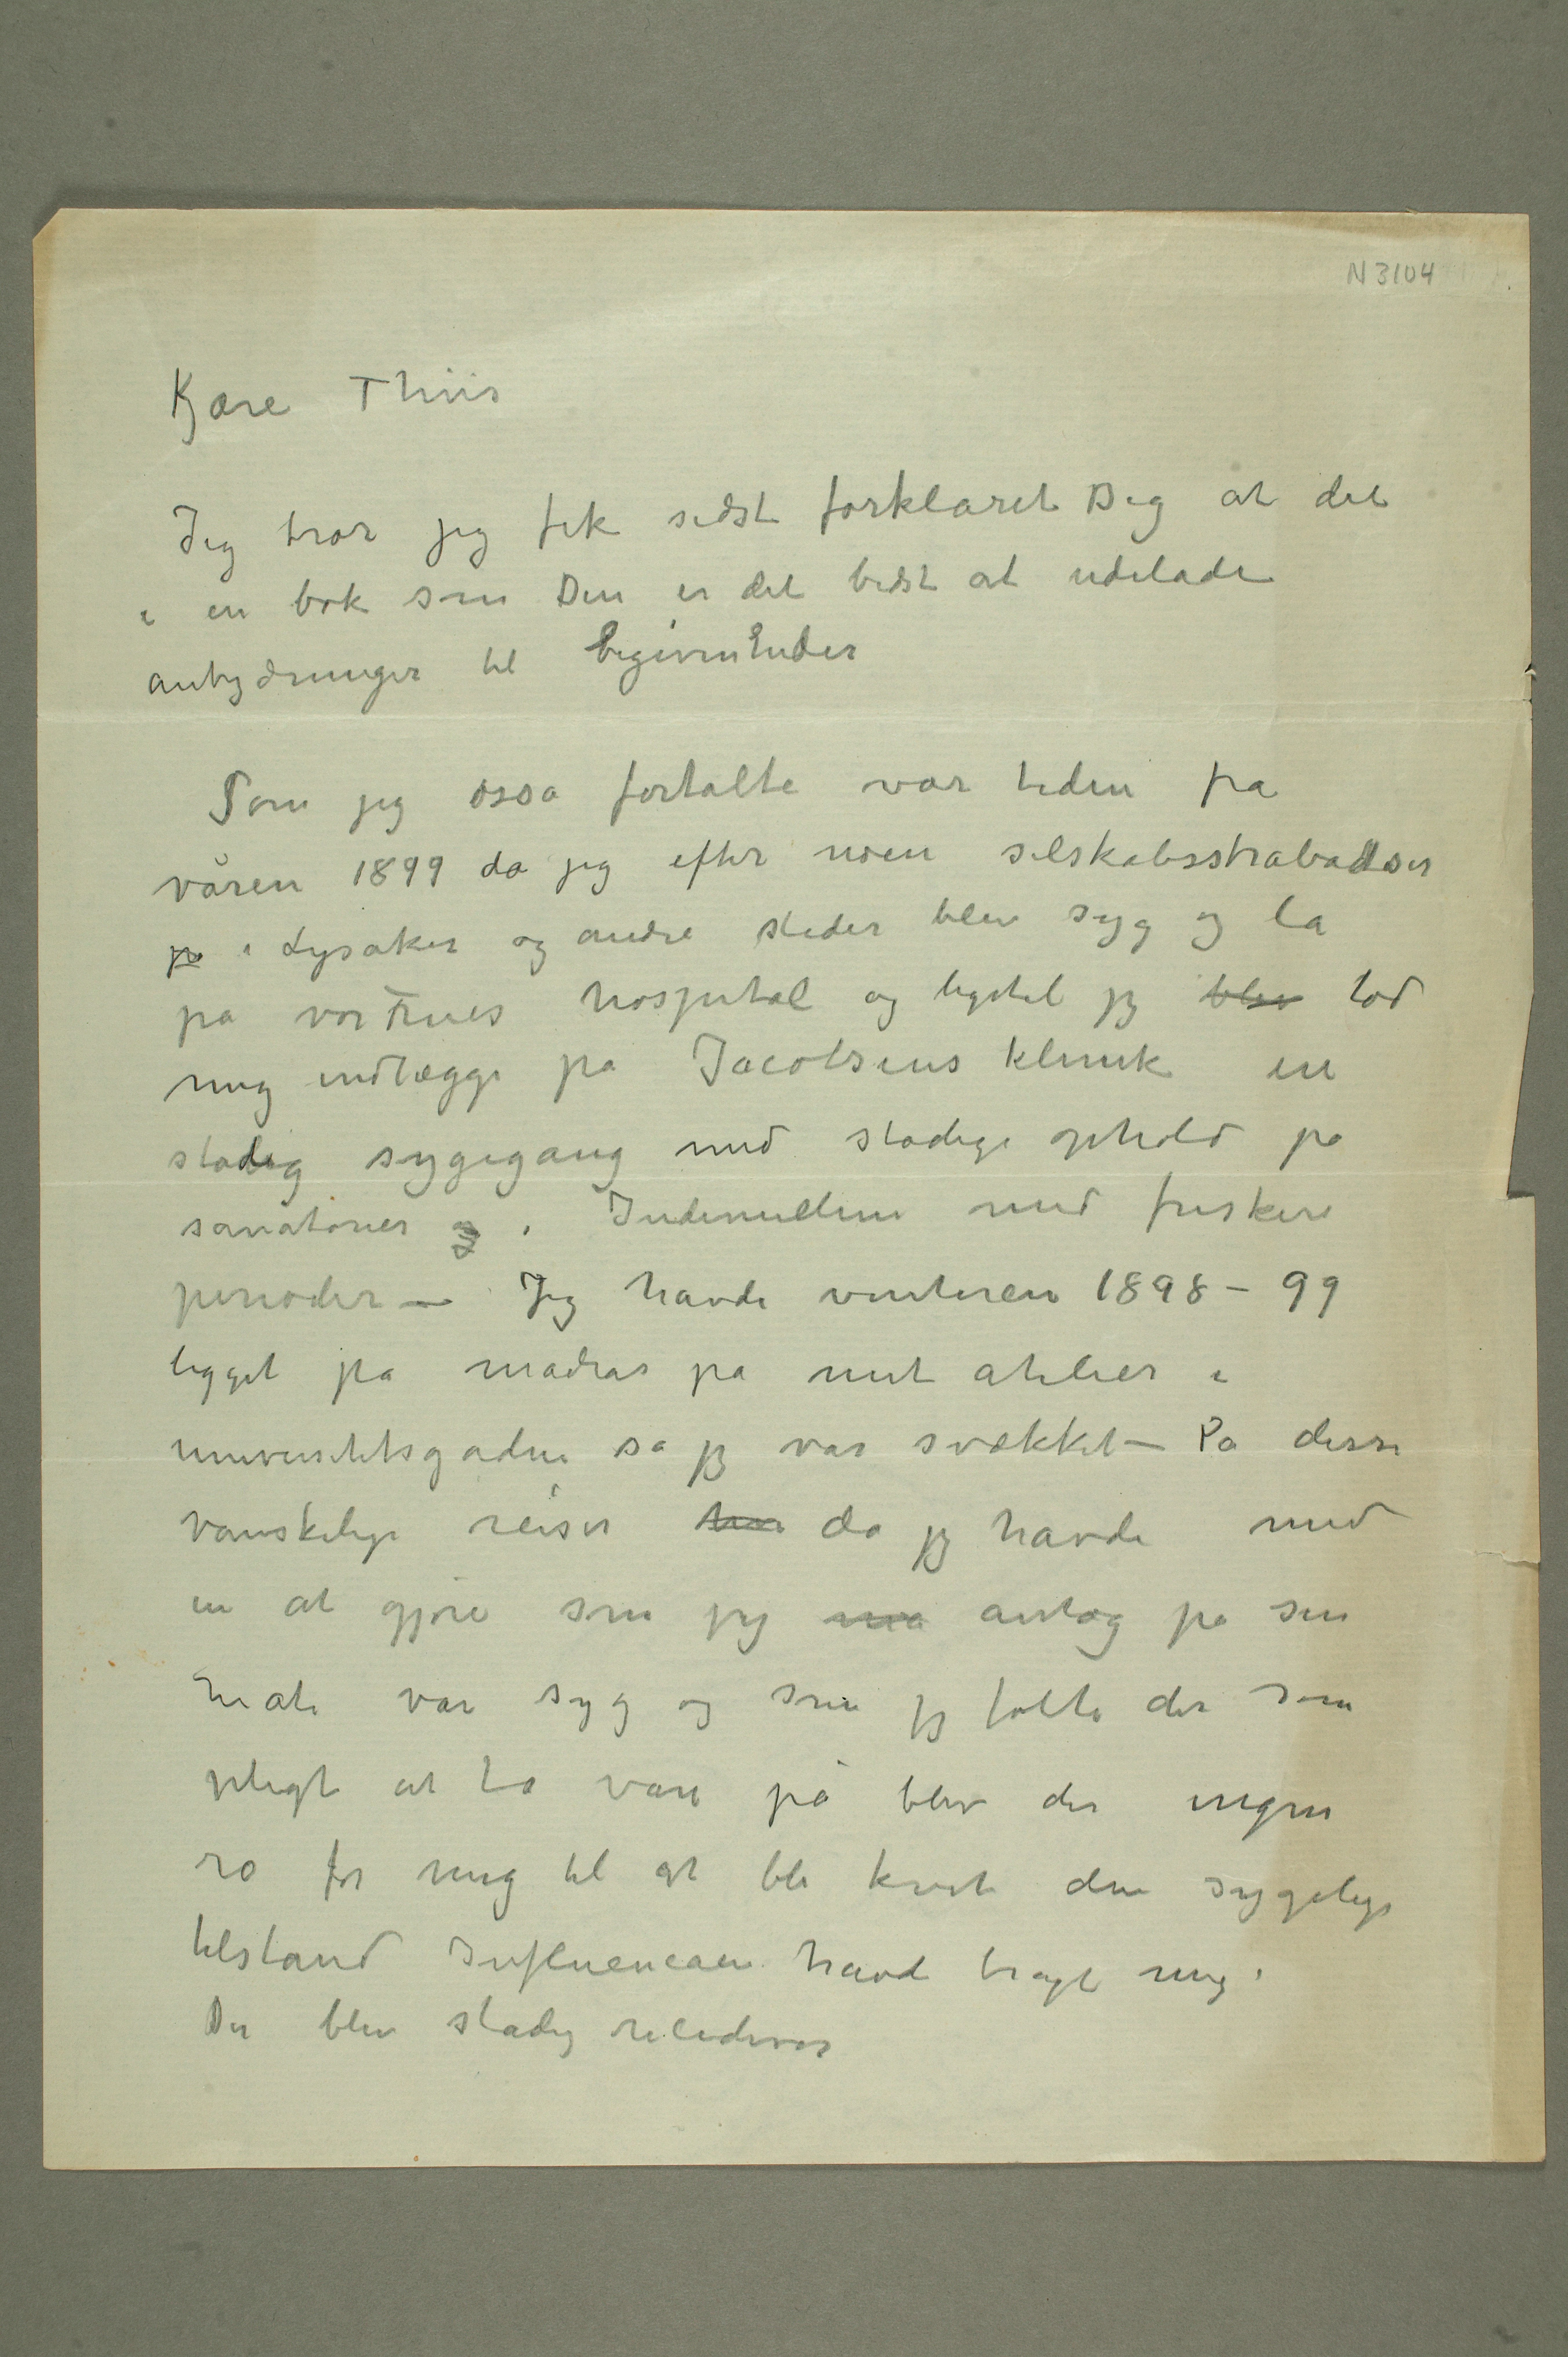 N 3104
Kjære Thiis
Jeg tror jeg fik sidst forklaret Dig at det
i en bok som Din er det bedst at udelade
antydninger til begivenheder
Som jeg osså fortalte var tiden fra
våren 1899 da jeg efter noen selskabsstrabadser
på i Lysaker og andre steder blev syg og lå
på vor Frues hospital og ligetil jeg blev lod
mig indlægge på Jacobsens klinik en
stadig sygegang med stadige ophold på
sanatorier og i Indimellem med friskere
perioder – Jeg havde vinteren 1898 – 99
ligget på madras på mit atelier i
universitetsgaden så jeg var svækket – På disse
vanskelige reiser da jeg havde med
en at gjøre som jeg antog på sin
måte var syg og som jeg følte der som
pligt at ta vare på blev der ingen
ro for mig til at bli kvit den sygelige
tilstand Influencaen havd bragt mig i
Der blev stadig recidiver